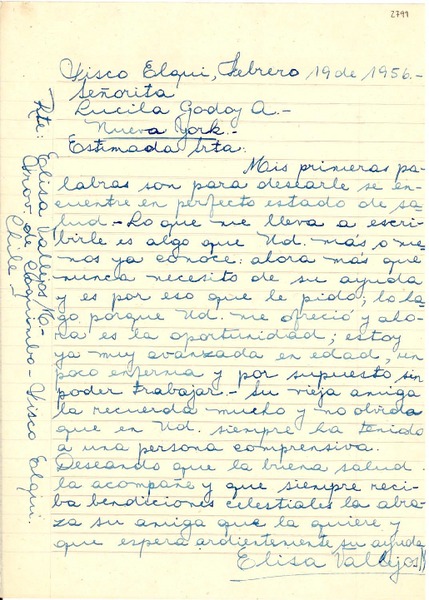 2799
Pisco Elqui, Febrero 19 de 1956.-
Señorita
Lucila Godoy A.-
Nueva York.-
Estimada Srta:
Mis primeras pa-
labras son para desearle se en-
cuentre en perfecto estado de sa-
lud.- Lo que me lleva a escri-
birle es algo que Ud. más o me-
nos ya conoce: ahora más que
nunca necesito de su ayuda
y es por eso que le pido; lo ha-
go porque Ud. me ofreció y aho-
ra es la oportunidad; estoy
ya muy avanzada en edad, un
poco enferma y por supuesto sin
poder trabajar.- Su vieja amiga
la recuerda mucho y no olvida
que en Ud. siempre ha tenido
a una persona comprensiva.
Deseando que la buena salud
la acompañe y que siempre reci-
ba bendiciones celestiales la abra-
za su amiga que la quiere y
que espera ardientemente su ayuda
Elisa Vallejos
Rte: Elisa Vallejos
Prov. de Coquimbo - Pisco Elqui.
Chile.-